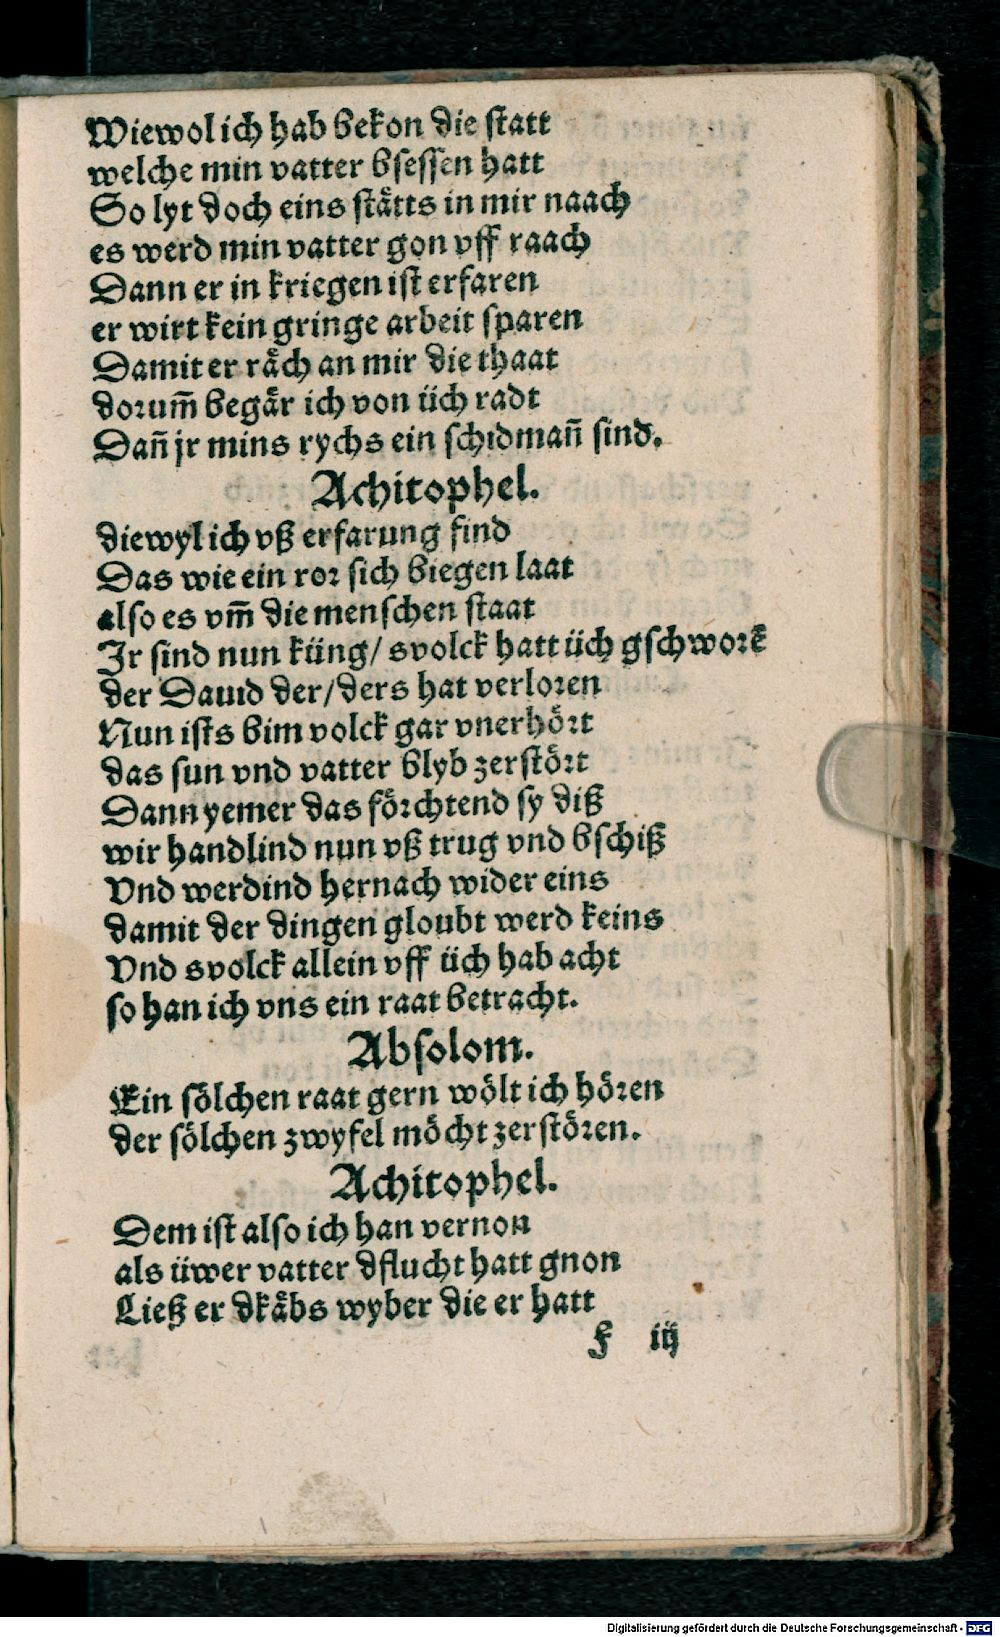 Wiewol ich hab bekon die statt
welche min vatter bsessen hatt
So lyt doch eins stätts in mir naach
es werd min vatter gon vff raach
Dann er in kriegen ist erfaren
er wirt kein gringe arbeit sparen
Damit er räch an mir die thaat
dorum̃ begär ich von üch radt
Dañ jr mins rychs ein schidmañ sind.
Achitophel.
diewyl ich vß erfarung find
Das wie ein ror sich biegen laat
also es vm̃ die menschen staat
Jr sind nun küng/ svolck hatt üch gschworẽ
der Dauid der/ders hat verloren
Nun ists bim volck gar vnerhört
das sun vnd vatter blyb zerstört
Dann yemer das förchtend sy diß
wir handlind nun vß trug vnd bschiß
Vnd werdind hernach wider eins
damit der dingen gloubt werd keins
Vnd svolck allein vff üch hab acht
so han ich vns ein raat betracht.
Absolom.
Ein sölchen raat gern wölt ich hören
der sölchen zwyfel möcht zerstören.
Achitophel.
Dem ist also ich han vernon
als üwer vatter dflucht hatt gnon
Ließ er dkäbs wyber die er hatt
F iij
Digitalisierung gefördert durch die Deutsche Forschungsgemeinschaft - DFG